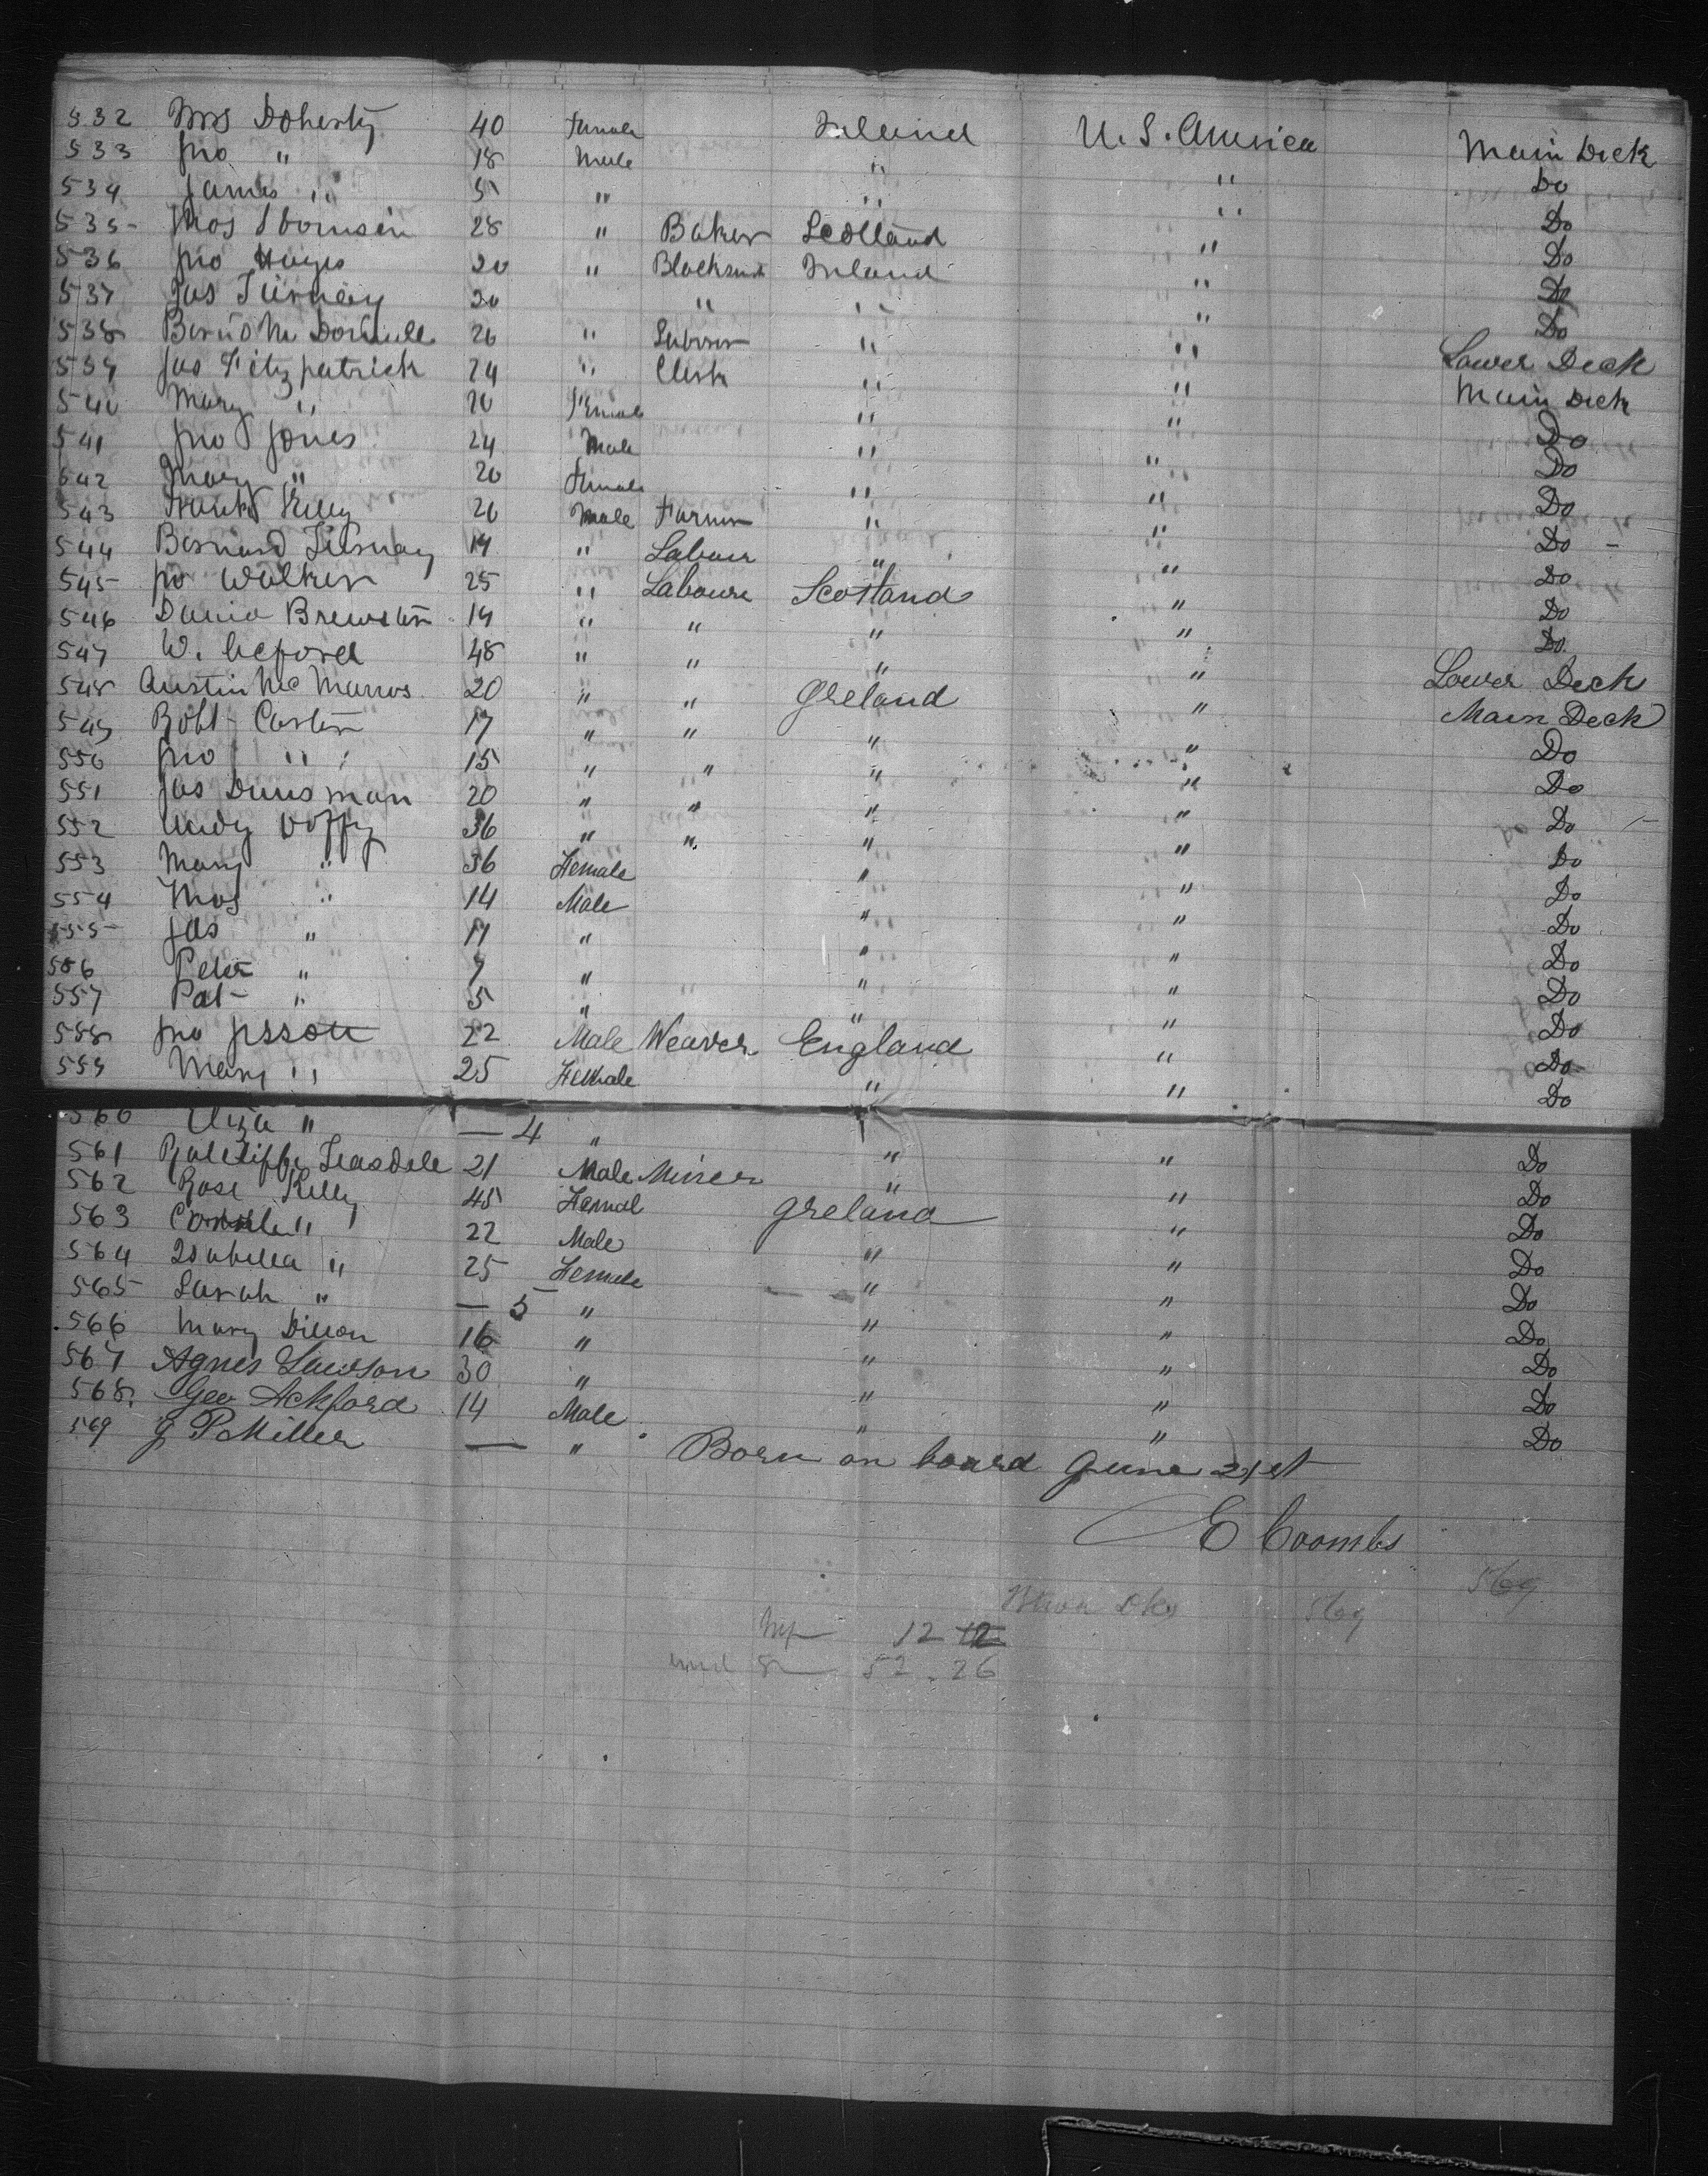 532 Mrs Doherty 40 Female Ireland U. S. America Main Deck
533 Jno " 18 Male " " Do
534 James " 5 " " " Do
535 Thos 28 " Baker Scotland " Do
536 Jno Hayes 20 " Blacksmith Ireland " Do
537 Jas Tierney 20 " " " Do
538 26 " Laborer " " Lower Deck
539 Jas Fitzpatrick 24 " Clerk " " Main Deck
540 Mary " 20 Female " " Do
541 Jno Jones 24 Male " " Do
542 Mary " 20 Female " " Do
543 Frank Kelly 20 Male Farmer " " Do
544 Bernard Tierney 19 " Labour " " Do
545 Jno Walker 25 " Laboure Scotland " Do
546 Brewster 19 " " " " Do
547 W. 48 " " " " Lower Deck
548 Austin Mc Manus 20 " " Ireland " Main Deck
549 Robt Carter 17 " " " " Do
550 Jno " 15 " " " " Do
551 Jas Dunsman 20 " " " " Do
552 Andy Doffy 36 " " " " Do
553 Mary " 36 Female " " Do
554 Thos " 14 Male " " Do
555 Jas " 11 " " " Do
556 Peter " 7 " " " Do
557 Pat " 5 " " " Do
558 Jno Jsson 22 Male Weaver England " Do
559 Mary " 25 Female " " Do
560 Eliza " — 4 " " " Do
561 Teasdale 21 Male Miner " " Do
562 Rose Kelly 45 Femal Ireland " Do
563 " 22 Male " " Do
564 Isabella " 25 Female " " Do
565 Sarah " — 5 " " " Do
566 Mary Dillon 16 " " " Do
567 Agnes Lawson 30 " " " Do
568 Geo Ackford 14 Male " " Do
569 J P Miller — " Born on board June 21st
E Coombs
569
569
12 12
52 . 26